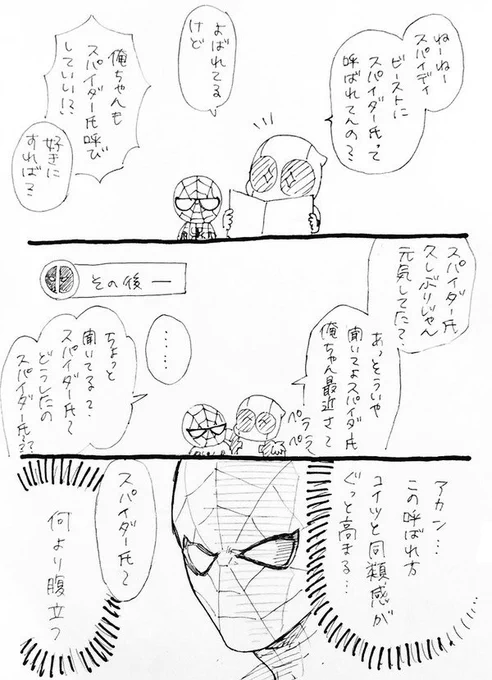 ねーねー
スパイディ
ビーストに
スパイダー氏って
呼ばれてんの？
よばれてる
けど
俺ちゃんも
スパイダー氏呼び
していい!?
好きに
すれば？
その後ー
スパイダー氏
久しぶりじゃん
元気してた？
あっそういや
聞いてよスパイダー氏
俺ちゃん最近さて
ペラ
ペラ
・・・・
ちょっと
聞いてる？
スパイダー氏〜
どうしたの
スパイダー氏??
アカン…
この呼ばれ方
コイツと同類感が
ぐっと高まる…
スパイダー氏〜
何より腹立つ